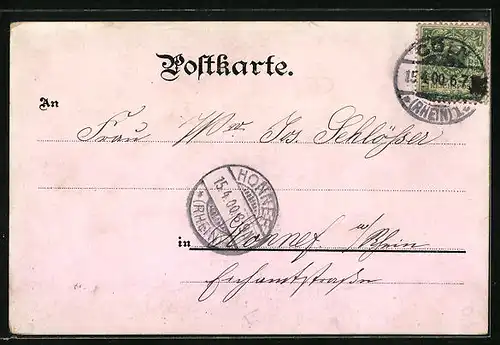 Postkarte.
CÖLN
15.4.00.6-7
*(RHEIN)1
An
Frau Wwe Jos. Schlößer
HONNEF
15.4.00.
*(RHEIN)
in Honnef a/Rhein